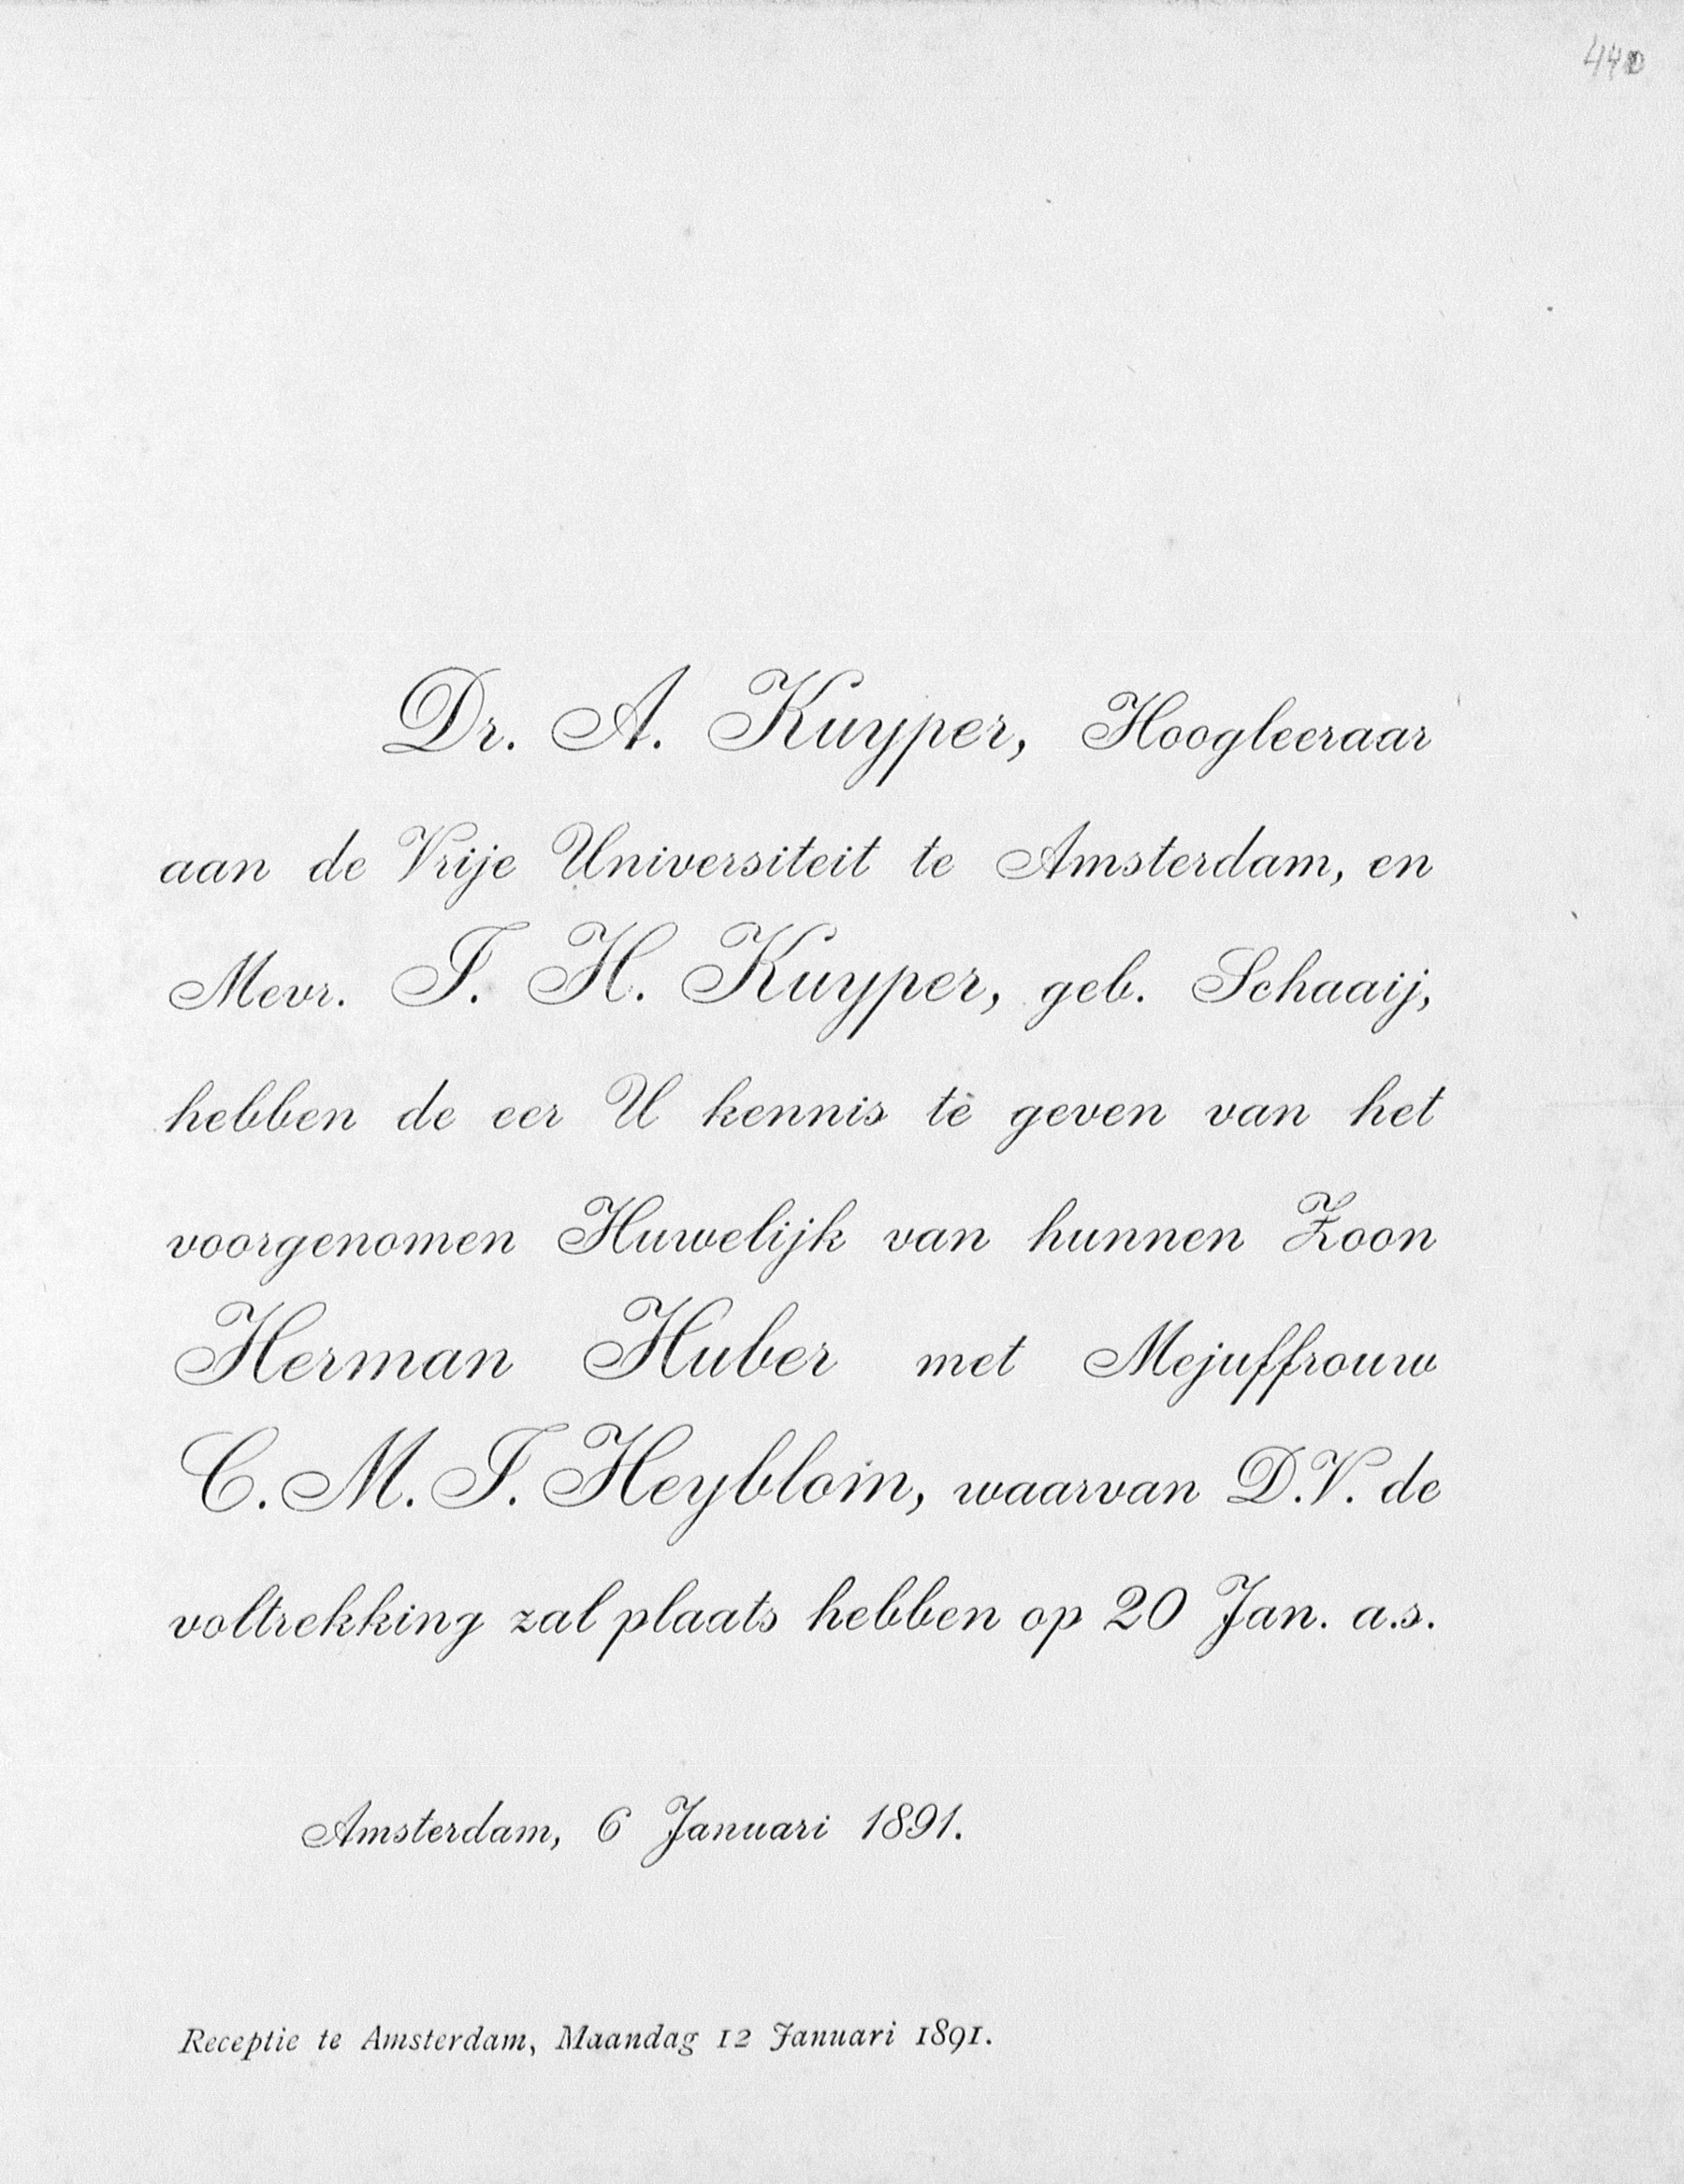 440
Dr. A. Kuyper, Hoogleeraar
aan de Vrije Universiteit te Amsterdam, en
Mevr. J. H. Kuyper, geb. Schaaij,
hebben de eer U kennis te geven van het
voorgenomen Huwelijk van hunnen Zoon
Herman Huber met Mejuffrouw
C. M. J. Heyblom, waarvan D.V. de
voltrekking zal plaats hebben op 20 Jan. a.s.
Amsterdam, 6 Januari 1891.
Receptie te Amsterdam, Maandag 12 Januari 1891.